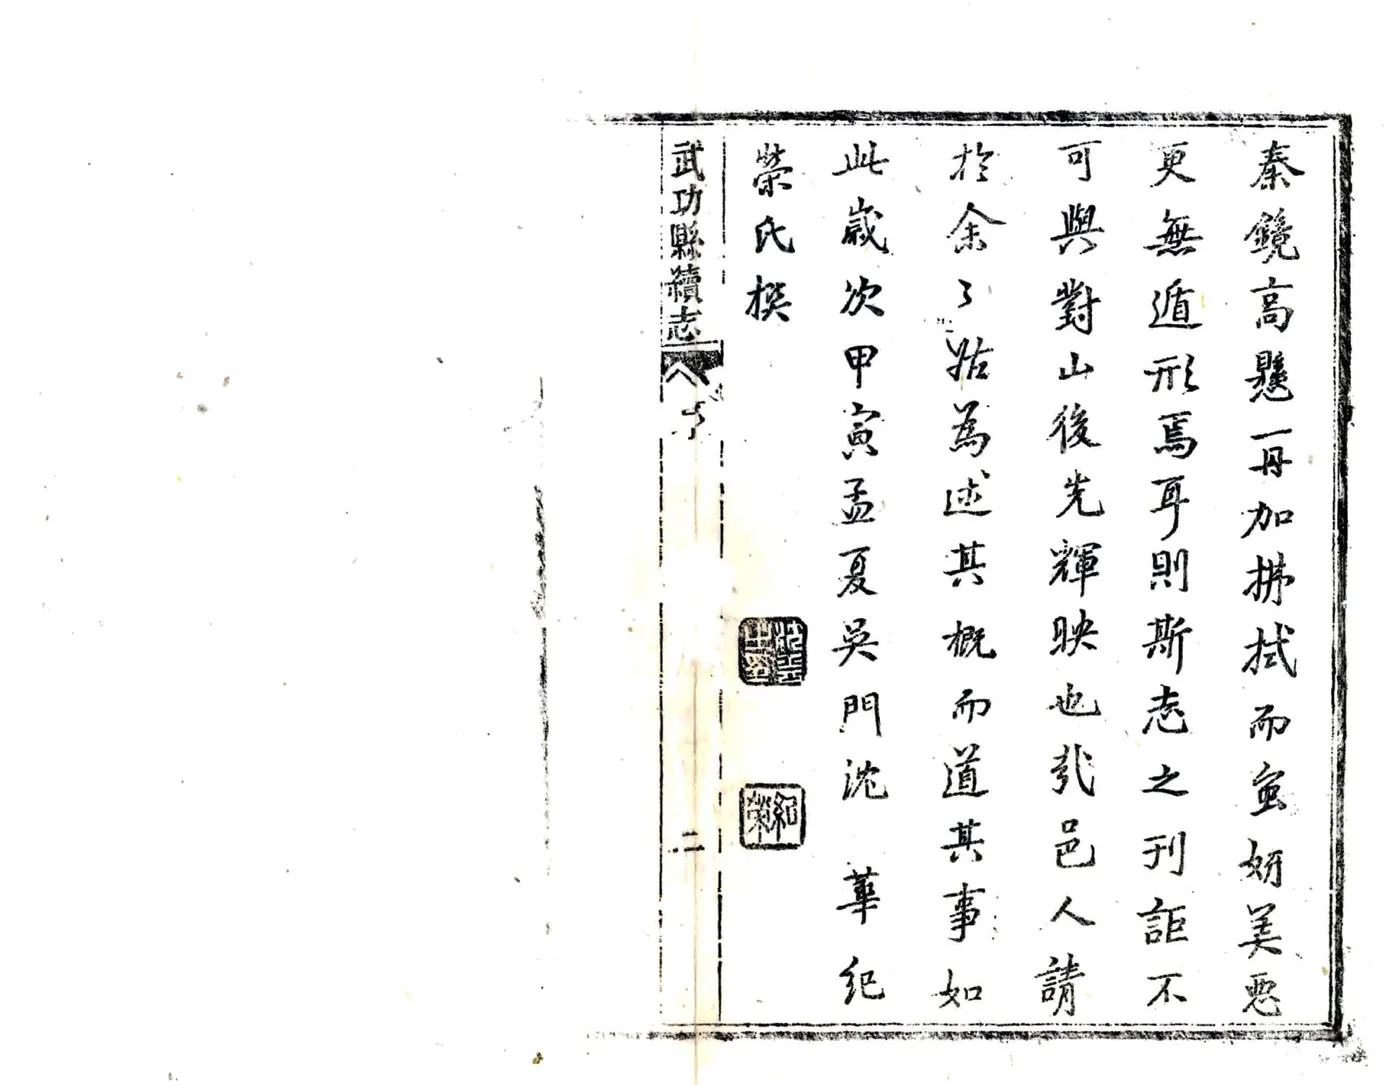 秦鏡高懸一再加拂拭而蚩妍美惡
更無遁形焉耳則斯志之刊詎不
可與對山後先輝映也哉邑人請
於余了姑為述其概而道其事如
此歲次甲寅孟夏吳門沈華紀
榮氏撰
武功縣續志
序
二
紀榮